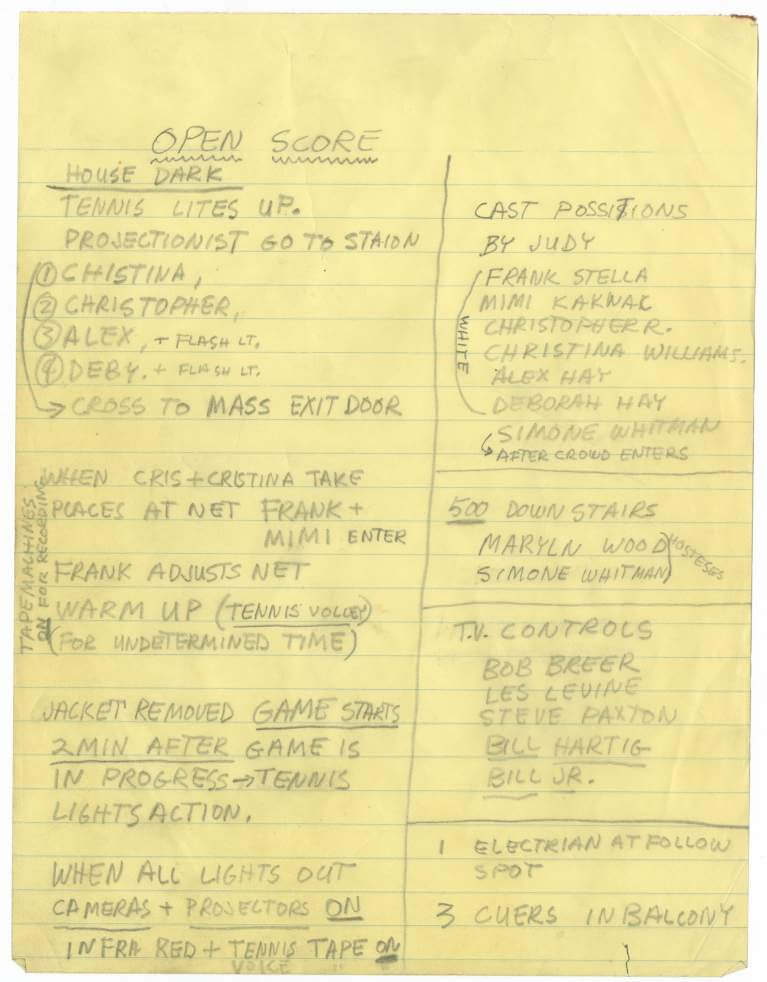 OPEN SCORE
HOUSE DARK
TENNIS LITES UP.
PROJECTIONIST GO TO STAION
① CHISTINA,
② CHRISTOPHER,
③ ALEX, + FLASH LT.
④ DEBY. + FLASH LT.
→ CROSS TO MASS EXIT DOOR
WHEN CRIS + CRISTINA TAKE
PLACES AT NET FRANK +
MIMI ENTER
FRANK ADJUSTS NET
WARM UP (TENNIS VOLLEY)
(FOR UNDETERMINED TIME)
TAPE MACHINES
ON FOR RECORDING
JACKET REMOVED GAME STARTS
2 MIN AFTER GAME IS
IN PROGRESS → TENNIS
LIGHTS ACTION.
WHEN ALL LIGHTS OUT
CAMERAS + PROJECTORS ON
INFRA RED + TENNIS TAPE ON
VOICE " "
CAST POSSITIONS
BY JUDY
WHITE
FRANK STELLA
MIMI KAKWAK
CHRISTOPHER R.
CHRISTINA WILLIAMS.
ALEX HAY
DEBORAH HAY
SIMONE WHITMAN
AFTER CROWD ENTERS
500 DOWN STAIRS
MARYLN WOOD
SIMONE WHITMAN
HOSTESES
T.V. CONTROLS
BOB BREER
LES LEVINE
STEVE PAXTON
BILL HARTIG
BILL JR.
1 ELECTRIAN AT FOLLOW
SPOT
3 CUERS IN BALCONY